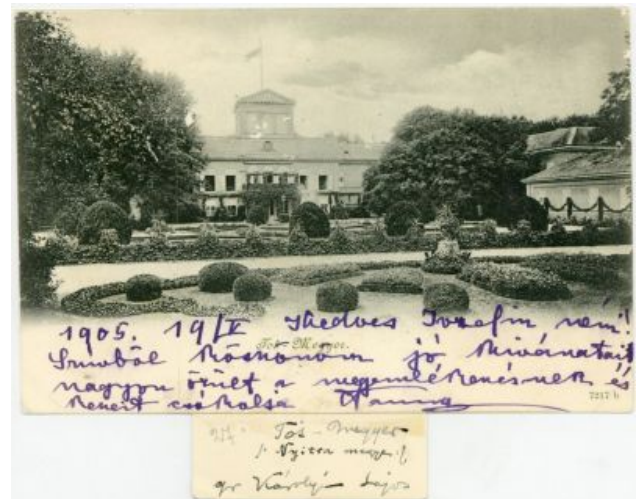 1905. 19/V Kedves Jozefin néni!
Tót Megyer.
Szivből köszönöm jó kivánatait
nagyon örült a megemlékenésnek és
kezeit csókolja
7217 b
Tós-Megyer
/: Nyitra megye :/
gr Károlyi Lajos